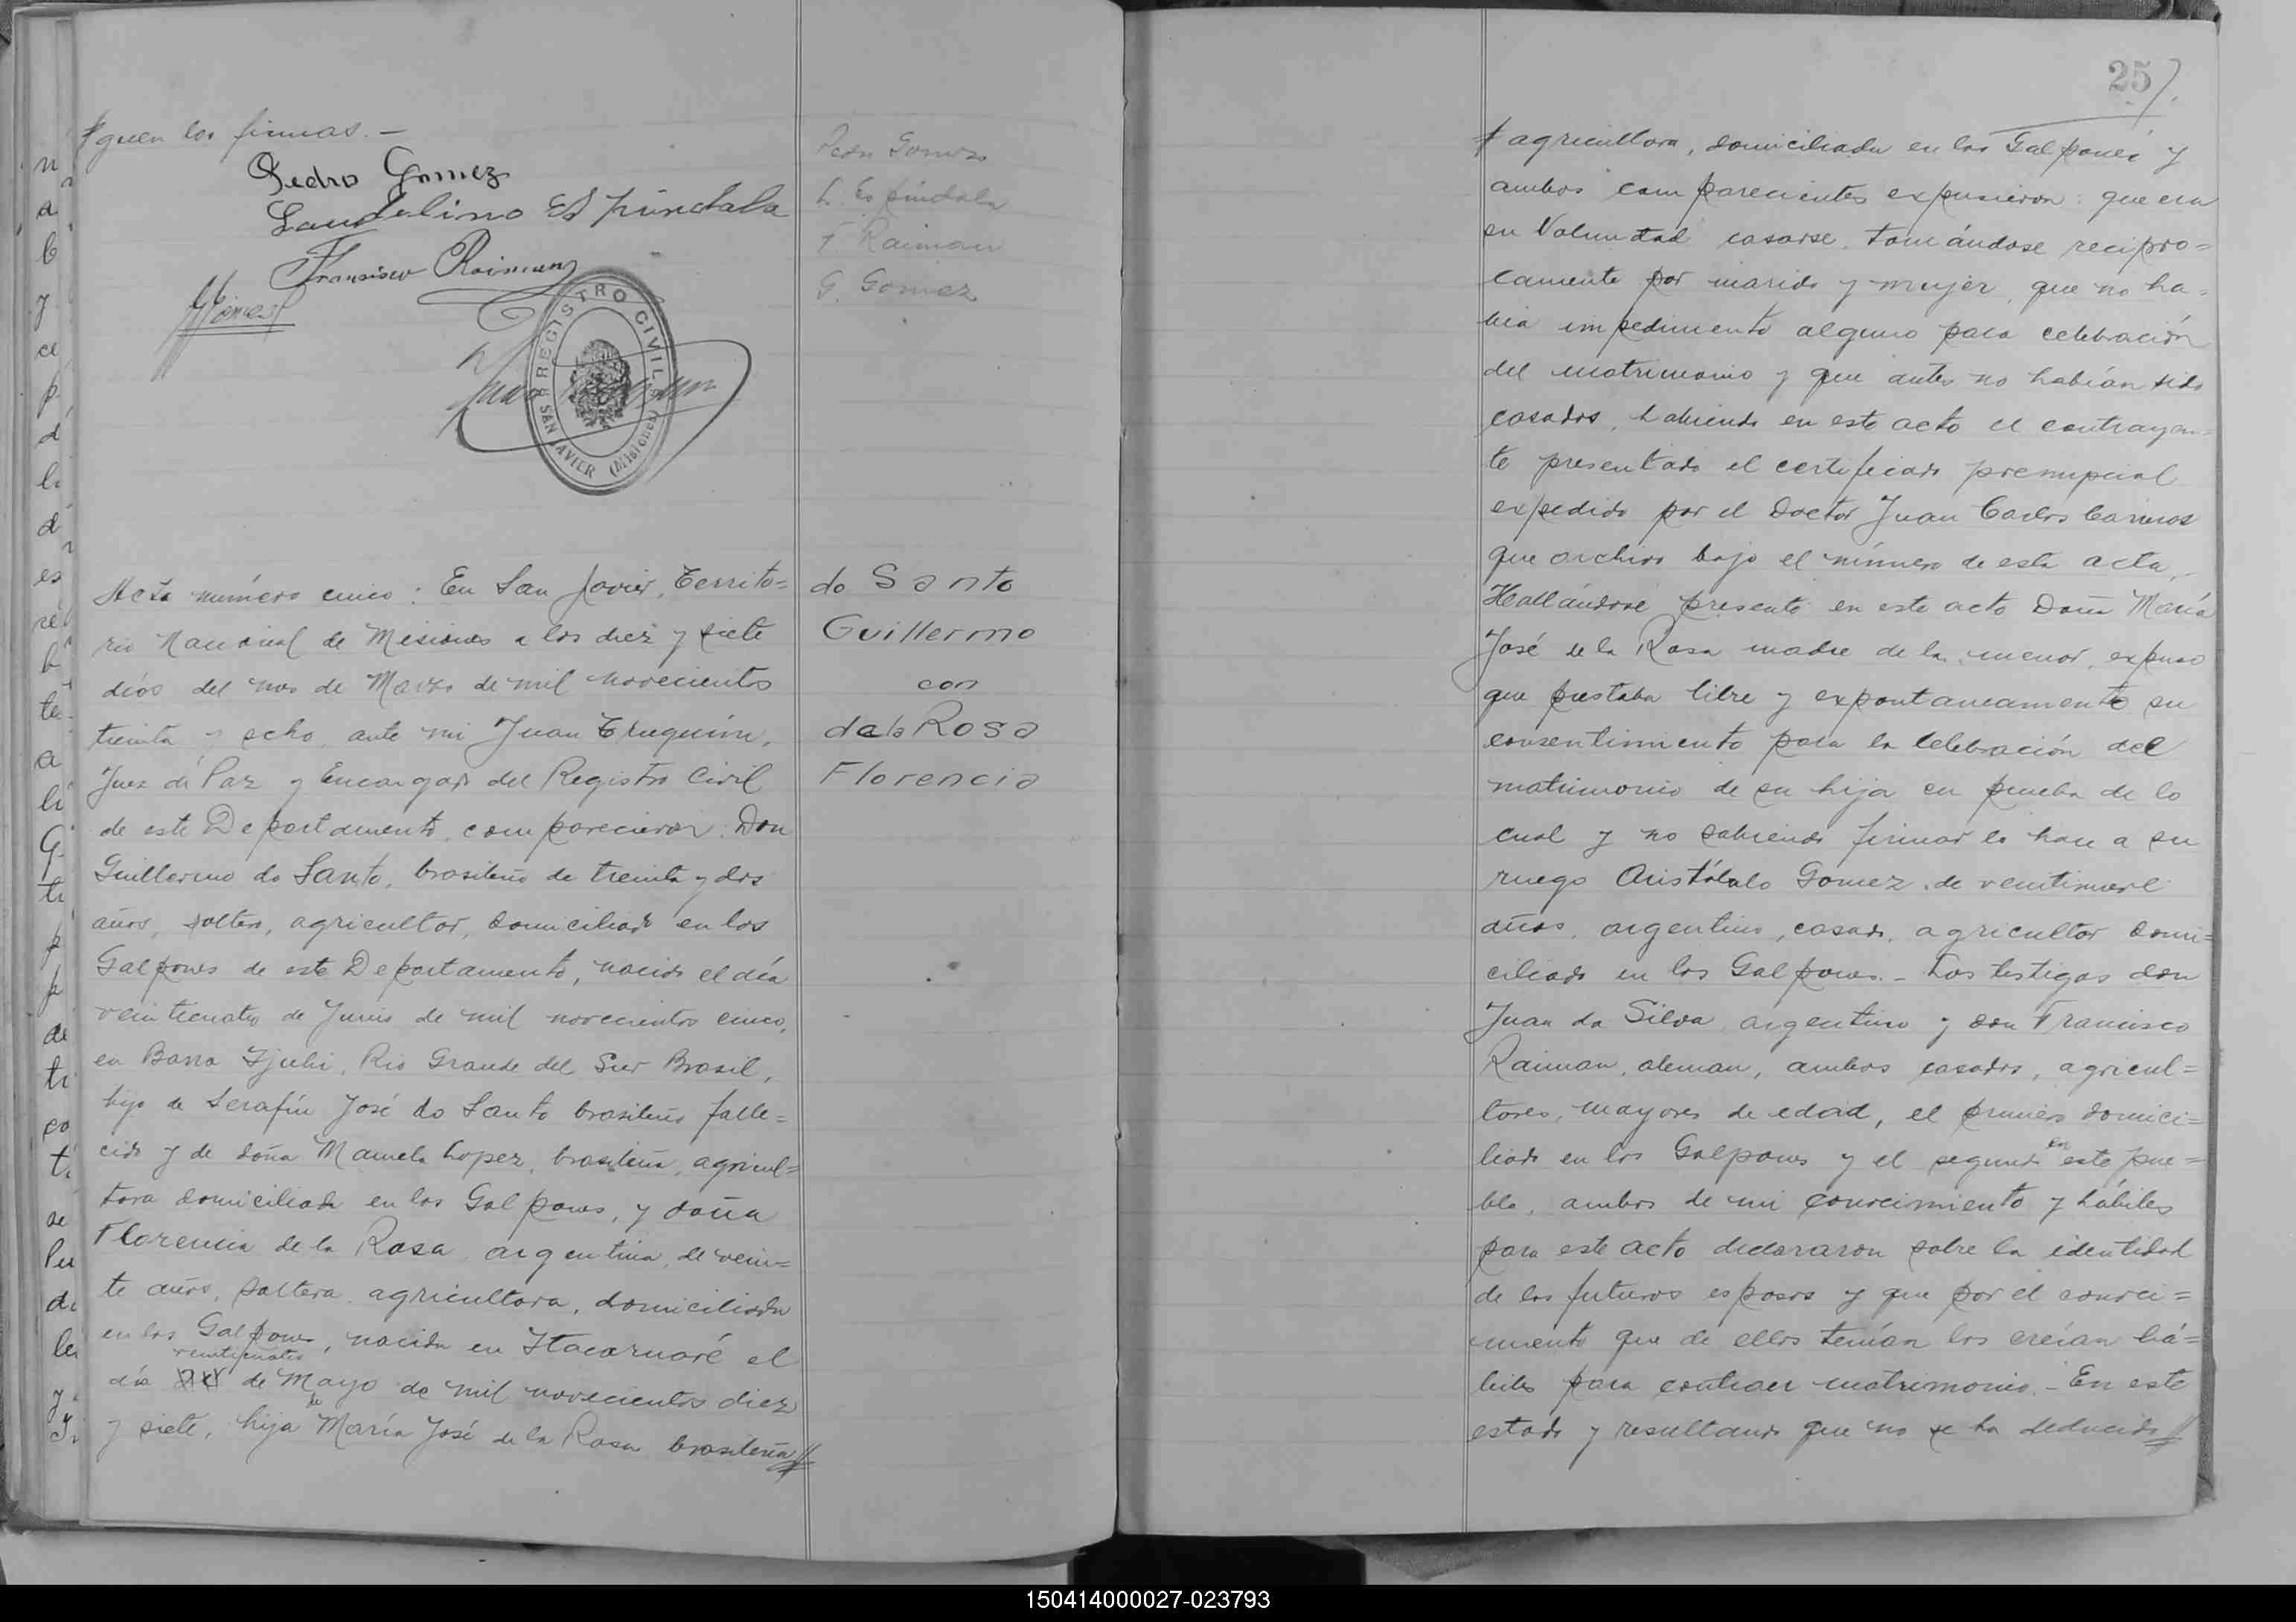 guen las firmas. —
Pedro Gomez
Laudelino Espindola
Francisco Raiman
REGISTRO CIVIL
SAN JAVIER (Misiones)
Pedro Gomez
L. Espindola
F. Raiman
G. Gomez
Acta número cinco: En San Javier, Territo=
rio Nacional de Misiones a los diez y siete
días del mes de Marzo de mil novecientos
treinta y ocho, ante mi Juan
Juez de Paz y Encargado del Registro Civil
de este Departamento, comparecieron: Don
Guillermo do Santo, brasileño de treinta y dos
años, soltero, agricultor, domiciliado en los
Galpones de este Departamento, nacido el día
veinticuatro de Junio de mil novecientos cinco,
en Barra Ijuhi, Rio Grande del Sur Brasil,
hijo de Serafín José do Santo brasileño falle=
cido y de doña Manuela Lopez, brasileña, agricul=
tora domiciliada en los Galpones, y doña
Florencia de la Rosa, argentina, de vein=
te años, soltera, agricultora, domiciliada
en los Galpones, nacida en Itacaruaré el
día veinticuatro de Mayo de mil novecientos diez
y siete, hija de María José de la Rosa brasileña//
do Santo
Guillermo
con
de la Rosa
Florencia
25
agricultora, domiciliada en los Galpones y
ambos comparecientes expusieron: que era
su voluntad casarse, tomándose recipro=
camente por marido y mujer, que no ha=
bia impedimento alguno para celebración
del matrimonio y que antes no habían sido
casados, habiendo en este acto el contrayen=
te presentado el certificado prenupcial
expedido por el Doctor Juan Carlos
que archivo bajo el número de esta acta,
Hallándose presente en este acto Doña María
José de la Rosa madre de la menor, expuso
que prestaba libre y expontaneamente su
consentimiento para la celebración del
matrimonio de su hija en prueba de lo
cual y no sabiendo firmar lo hace a su
ruego Aristóbulo Gomez, de veintinueve
años, argentino, casado, agricultor domi=
ciliado en los Galpones.- Los testigos don
Juan da Silva, argentino y don Francisco
Raiman, aleman, ambos casados, agricul=
tores, mayores de edad, el primero domici=
liado en los Galpones y el segundo en este pue=
blo, ambos de mi conocimiento y hábiles
para este acto declararon sobre la identidad
de los futuros esposos y que por el conoci=
miento que de ellos tenían los creían há=
biles para contraer matrimonio.- En este
estado y resultando que no se ha deducido//
150414000027-023793